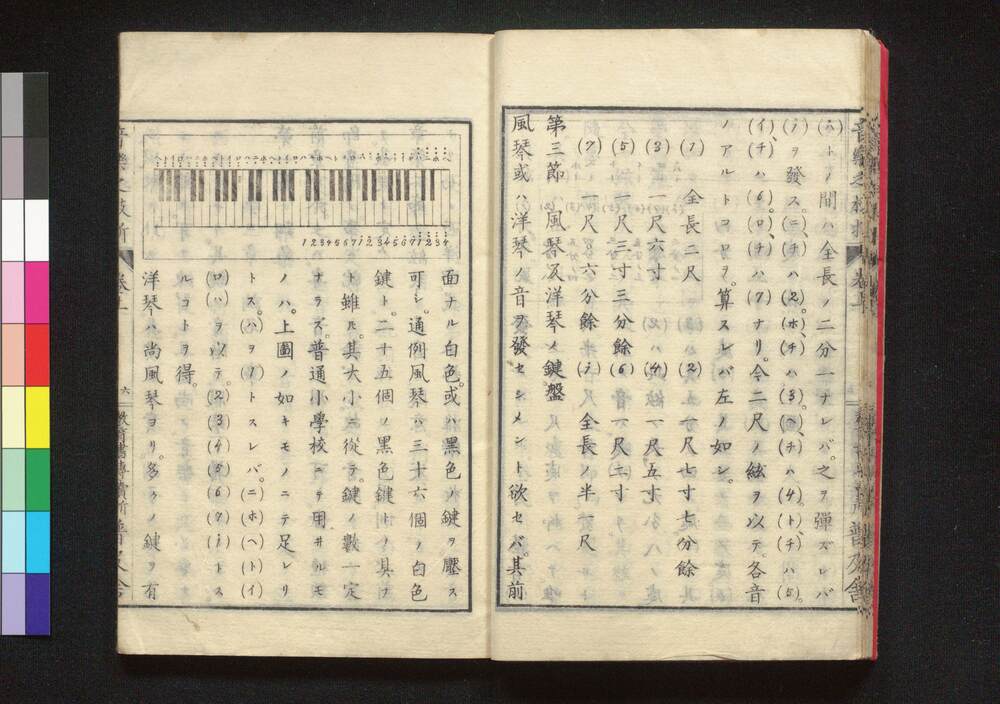 (ハ)ト(ノ)間ハ全長ノ二分一ナレバ。之ヲ彈ズレバ
(i)ヲ發ス。(ニ)(チ)ハ(2)。(ホ)、(チ)ハ(3)。(ヘ)、(チ)ハ(4)。(ト)、(チ)ハ(5)。
(イ)、(チ)ハ(6)。(ロ)、(チ)ハ(7)ナリ。今二尺ノ絃ヲ以テ。各音
ノアルトコロヲ。算スレバ左ノ如シ。
(1) 全長二尺 (2) 一尺七寸七分餘
(3) 一尺六寸 (4) 一尺五寸
(5) 一尺三寸三分餘 (6) 一尺二寸
(7) 一尺〇六分餘 (i) 全長ノ半一尺
第三節 風琴及洋琴ノ鍵盤
風琴或ハ洋琴ノ音ヲ發セシメント欲セバ。其前
1 2 3 4 5 6 7 1 2 3 4 5 6 7 1 2 3 4
面ナル白色。或ハ黑色ノ鍵ヲ壓ス
可シ。通例風琴ハ三十六個ノ白色
鍵ト。二十五個ノ黑色鍵トノ具フ
ト雖ㇳモ。其大小ニ從テ。鍵ノ數一定
ナラズ。普通小學校ニテ用井ルモ
ノハ。上圖ノ如キモノニテ足レリ
トス。(ハ)ヲ(1)トスレバ。(ニ)(ホ)(ヘ)(ト)(イ)
(ロ)(ハ)ヲ以テ。(2)(3)(4)(5)(6)(7)(i)トス
ルコトヲ得。
洋琴ハ尚風琴ヨリ。多クノ鍵ヲ有
六